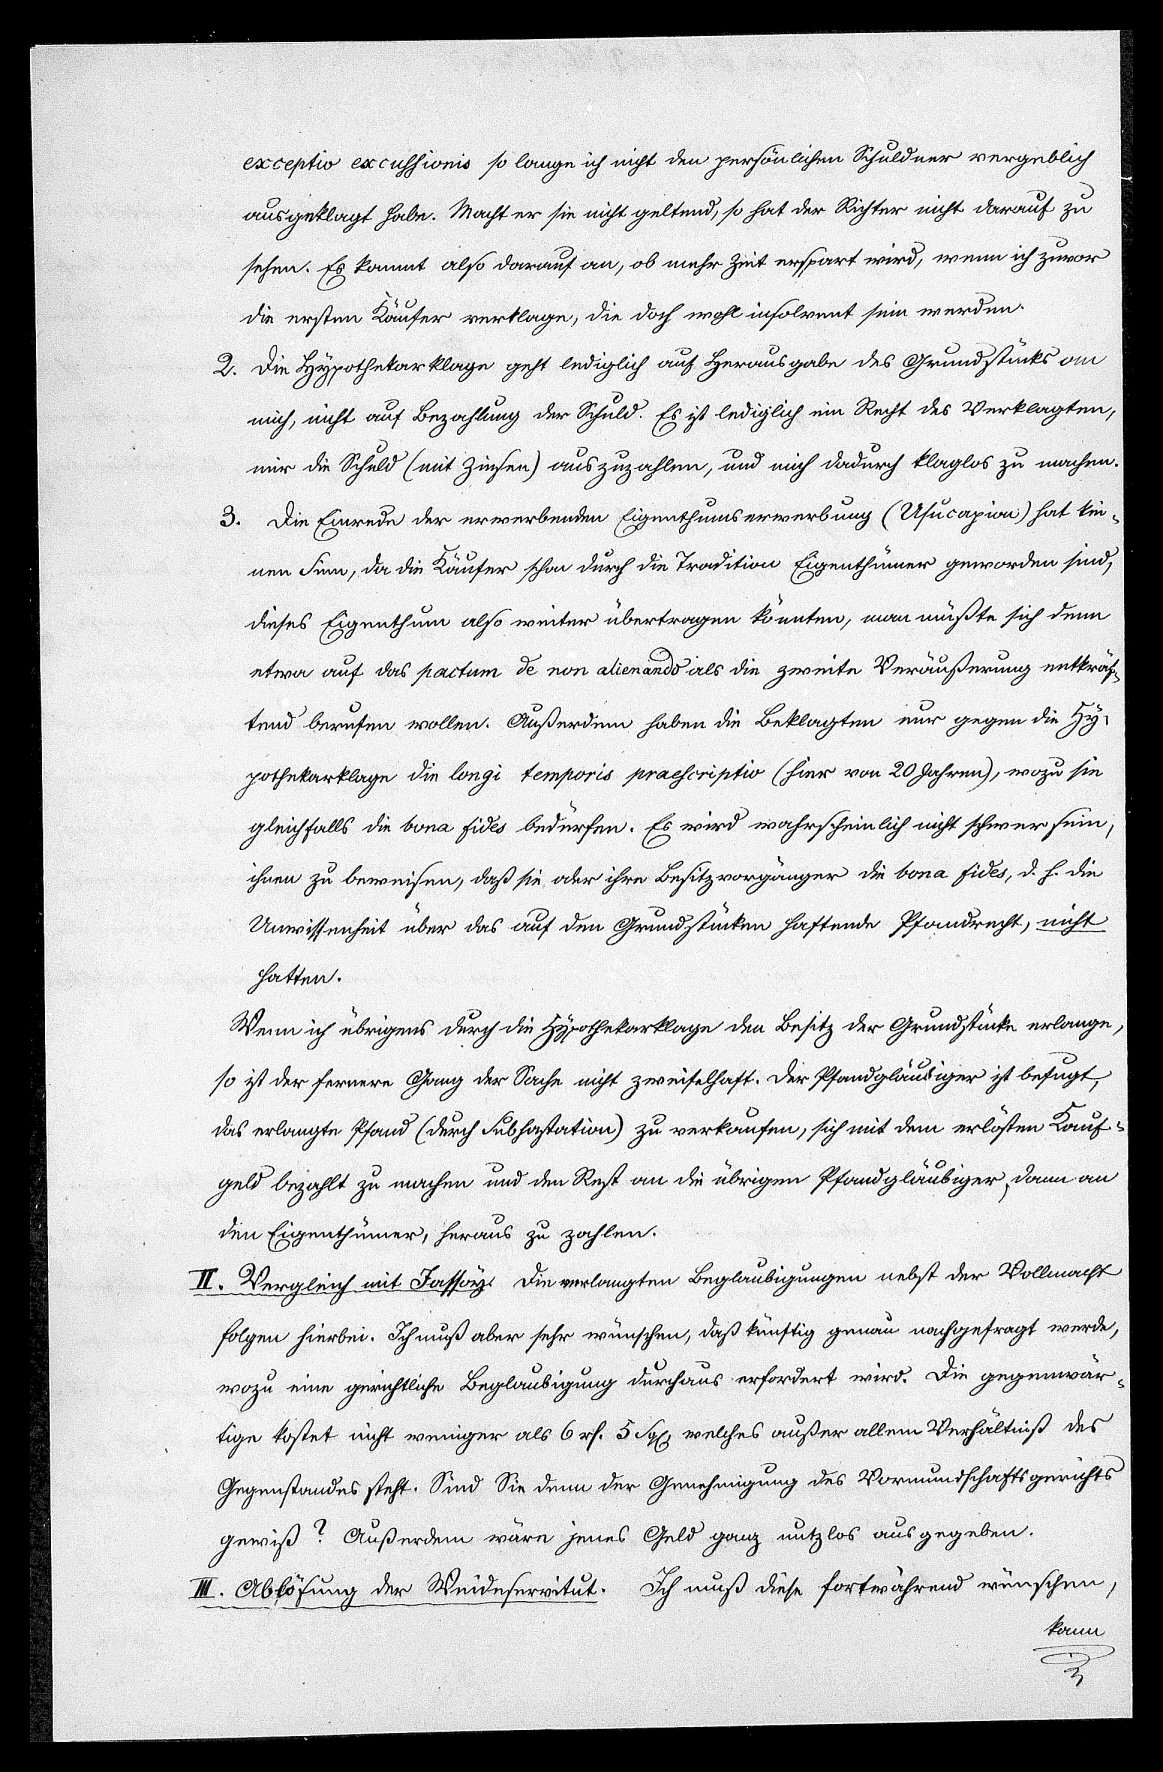 exceptio excussionis so lange ich nicht den persönlichen Schuldner vergeblich
ausgeklagt habe. Macht er sie nicht geltend, so hat der Richter nicht darauf zu
sehen. Es kommt also darauf an, ob mehr Zeit erspart wird, wenn ich zuvor
die ersten Käufer verklage, die doch wohl insolvent sein werden.
2. Die Hypothekarklage geht lediglich auf Herausgabe des Grundstücks an
mich, nicht auf Bezahlung der Schuld. Es ist lediglich ein Recht des Verklagten,
mir die Schuld (mit Zinsen) auszuzahlen, und mich dadurch klaglos zu machen.
3. Die Einrede der erwerbenden Eigenthumserwerbung (Usucapion) hat kei-
nen Sinn, da die Käufer schon durch die Tradition Eigenthümer geworden sind,
dieses Eigenthum also weiter übertragen könnten, man müßte sich denn
etwa auf das pactum de non alienando als die zweite Veräußerung entkräf-
tend berufen wollen. Außerdem haben die Beklagten nur gegen die Hy-
pothekarklage die longi temporis praescriptio (hier von 20 Jahren), wozu sie
gleichfalls die bona fides bedürfen. Es wird wahrscheinlich nicht schwer sein,
ihnen zu beweisen, daß sie oder ihre Besitzvorgänger die bona fides, d. h. die
Unwissenheit über das auf den Grundstücken haftende Pfandrecht, nicht
hatten.
Wenn ich übrigens durch die Hypothekarklage den Besitz der Grundstücke erlange,
so ist der fernere Gang der Sache nicht zweifelhaft. Der Pfandgläubiger ist befugt,
das erlangte Pfand (durch Subhastation) zu verkaufen, sich mit dem erlösten Kauf-
geld bezahlt zu machen und den Rest an die übrigen Pfandgläubiger, dann an
den Eigenthümer, heraus zu zahlen.
II. Vergleich mit Jassoy. Die verlangten Beglaubigungen nebst der Vollmacht
folgen hierbei. Ich muß aber sehr wünschen, daß künftig genau nachgefragt werde,
wozu eine gerichtliche Beglaubigung durchaus erfordert wird. Die gegenwär-
tige kostet nicht weniger als 6 rh. 5 Sg, welches außer allem Verhältniß des
Gegenstandes steht. Sind Sie denn der Genehmigung des Vormundschaftsgerichts
gewiß? Außerdem wäre jenes Geld ganz nutzlos ausgegeben.
III. Ablösung der Weideservitut. Ich muß diese fortwährend wünschen,
kann